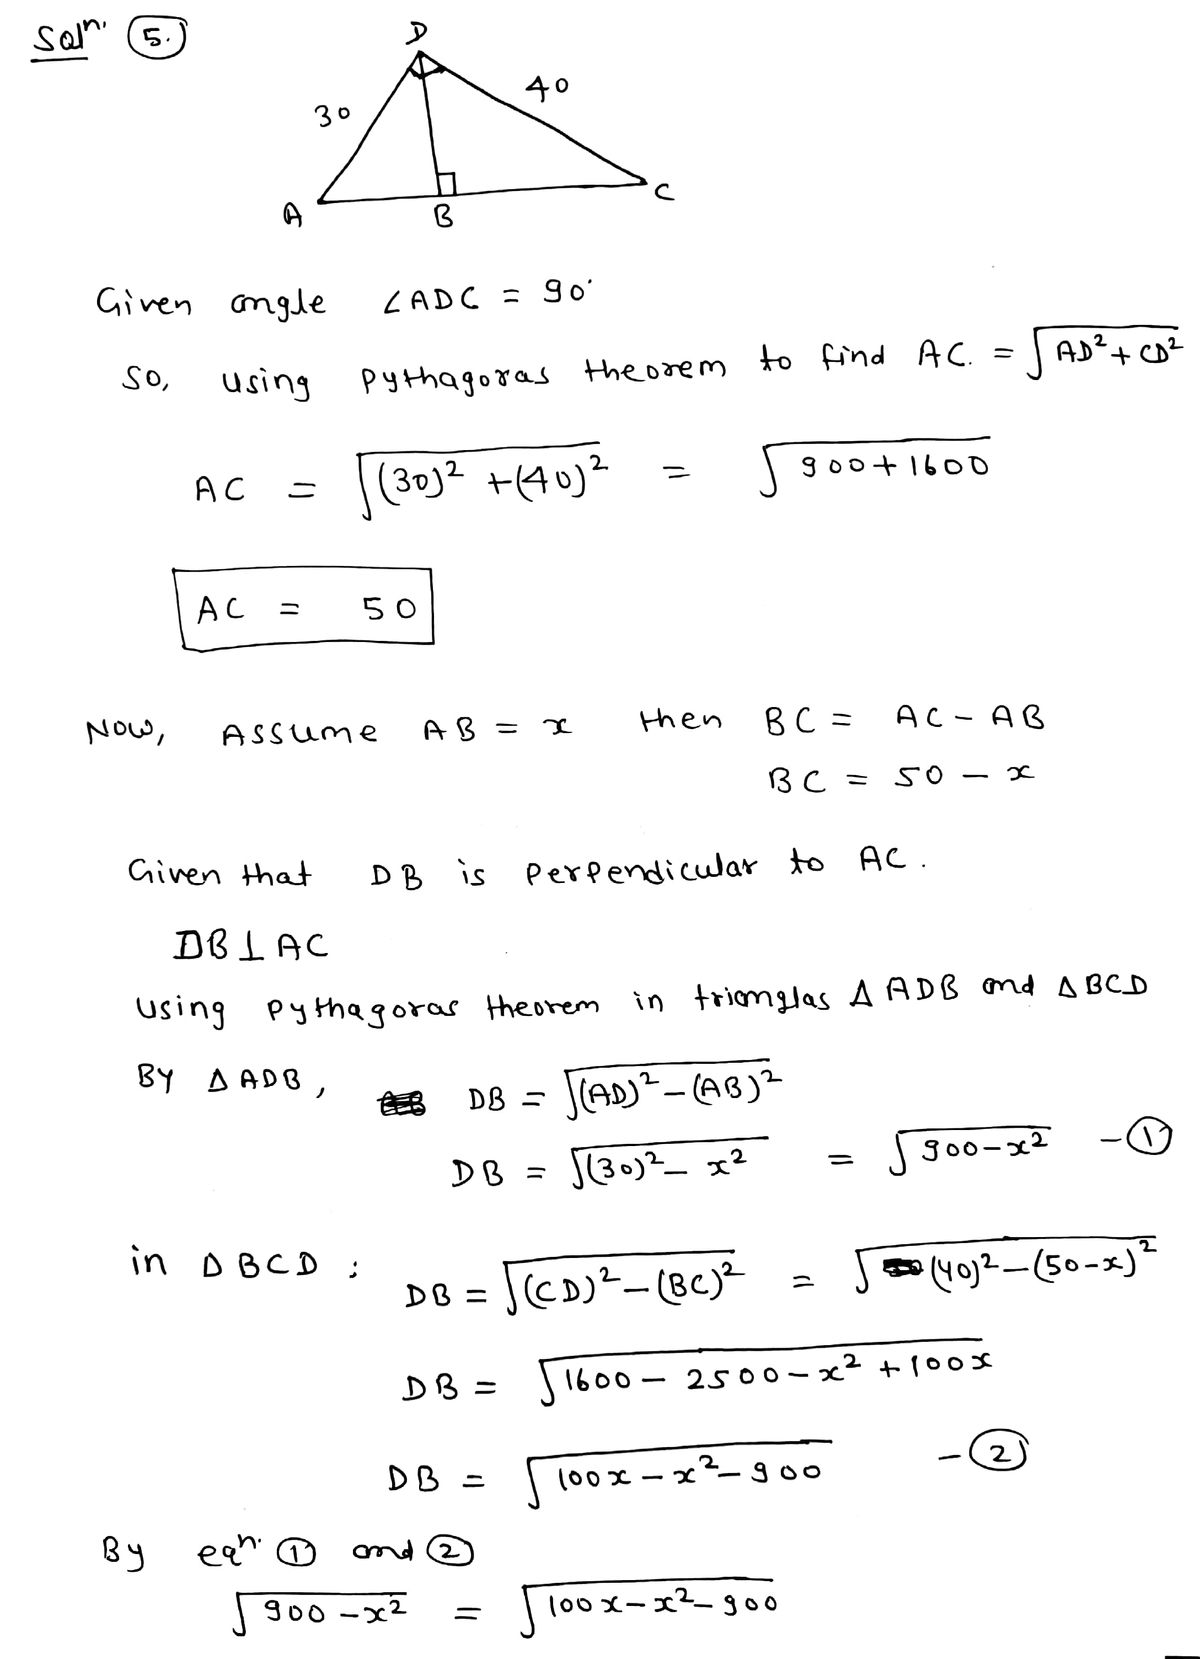 Solⁿ. 5.
D
30
40
A
B
C
Given angle ∠ADC = 90°
So, using pythagoras theorem to find AC. = √(AD² + CD²)
AC = √((30)² + (40)²) = √(900 + 1600)
AC = 50
Now, Assume AB = x then BC = AC - AB
BC = 50 - x
Given that DB is perpendicular to AC.
DB ⊥ AC
using pythagoras theorem in trianglas Δ ADB and Δ BCD
By Δ ADB, DB = √((AD)² - (AB)²)
DB = √((30)² - x²) = √(900 - x²) - ①
in Δ BCD : DB = √((CD)² - (BC)²) = √((40)² - (50-x)²)
DB = √(1600 - 2500 - x² + 100x)
DB = √(100x - x² - 900) - ②
By eqⁿ. ① and ②
√(900 - x²) = √(100x - x² - 900)